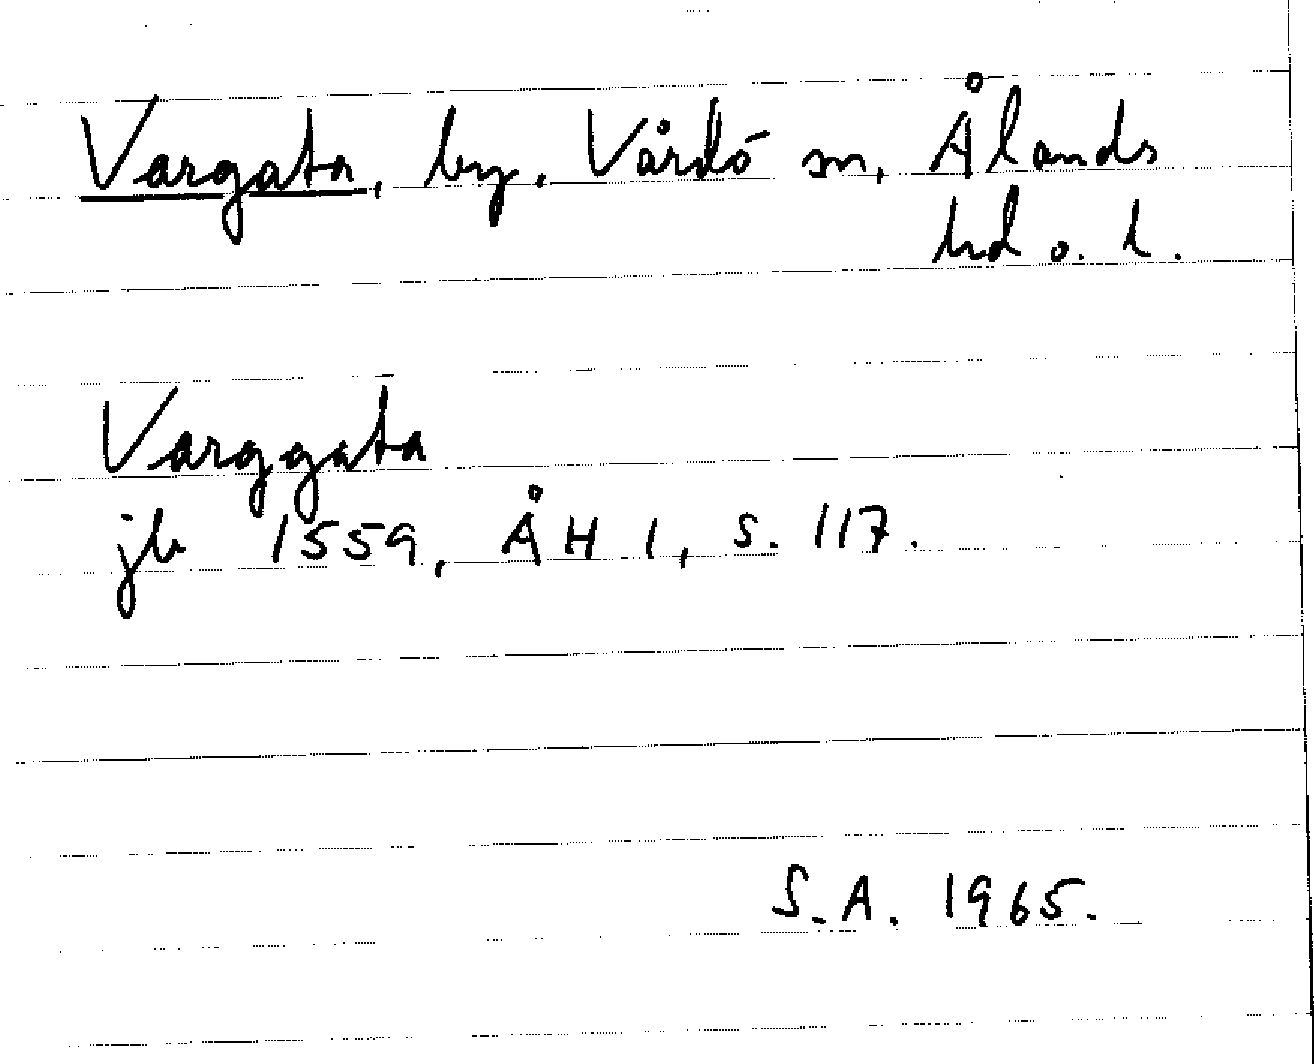 Vargata, by. Vårdö sn, Ålands
hd o. l.
Varggata
jb 1559, ÅH 1, s. 117.
S.A. 1965.